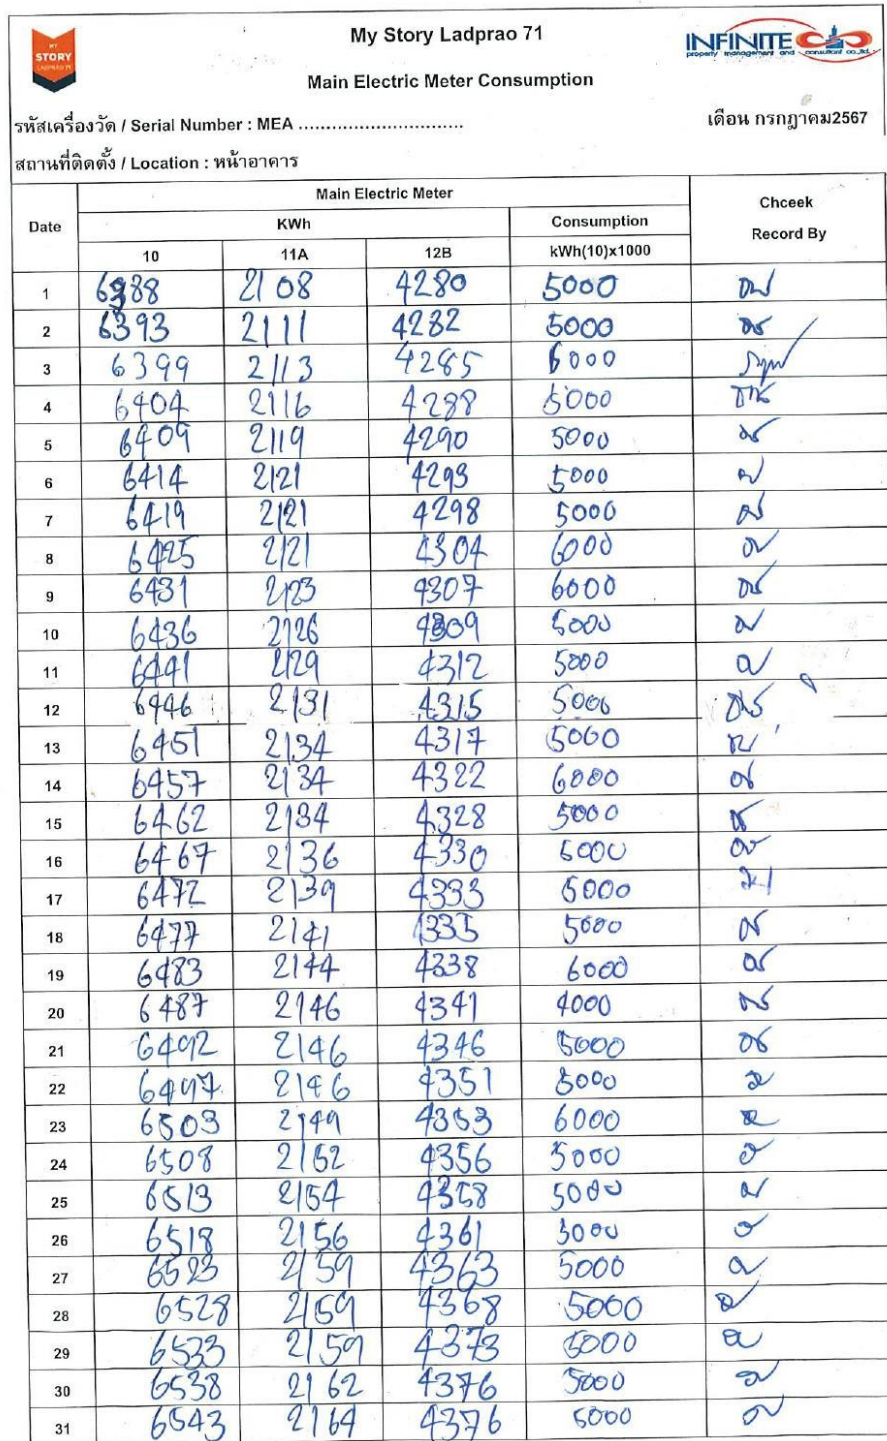 MY
STORY
LADPRAO 71
My Story Ladprao 71
INFINITE
property management and consultant co.,ltd.
Main Electric Meter Consumption
รหัสเครื่องวัด / Serial Number : MEA ..............................
เดือน กรกฎาคม2567
สถานที่ติดตั้ง / Location : หน้าอาคาร
Date Main Electric Meter Cheek Record By
KWh Consumption
10 11A 12B kWh(10)x1000
1 6388 2108 4280 5000
2 6393 2111 4282 5000
3 6399 2113 4285 6000
4 6404 2116 4288 5000
5 6409 2119 4290 5000
6 6414 2121 4293 5000
7 6419 2121 4298 5000
8 6425 2121 4304 6000
9 6431 2123 4307 6000
10 6436 2126 4309 5000
11 6441 2129 4312 5000
12 6446 2131 4315 5000
13 6451 2134 4317 5000
14 6457 2134 4322 6000
15 6462 2134 4328 5000
16 6467 2136 4330 5000
17 6472 2139 4333 5000
18 6477 2141 4335 5000
19 6483 2144 4338 6000
20 6487 2146 4341 4000
21 6492 2146 4346 5000
22 6497 2146 4351 5000
23 6503 2149 4353 6000
24 6508 2152 4356 5000
25 6513 2154 4358 5000
26 6518 2156 4361 5000
27 6523 2159 4363 5000
28 6528 2159 4368 5000
29 6533 2159 4373 5000
30 6538 2162 4376 5000
31 6543 2164 4376 5000